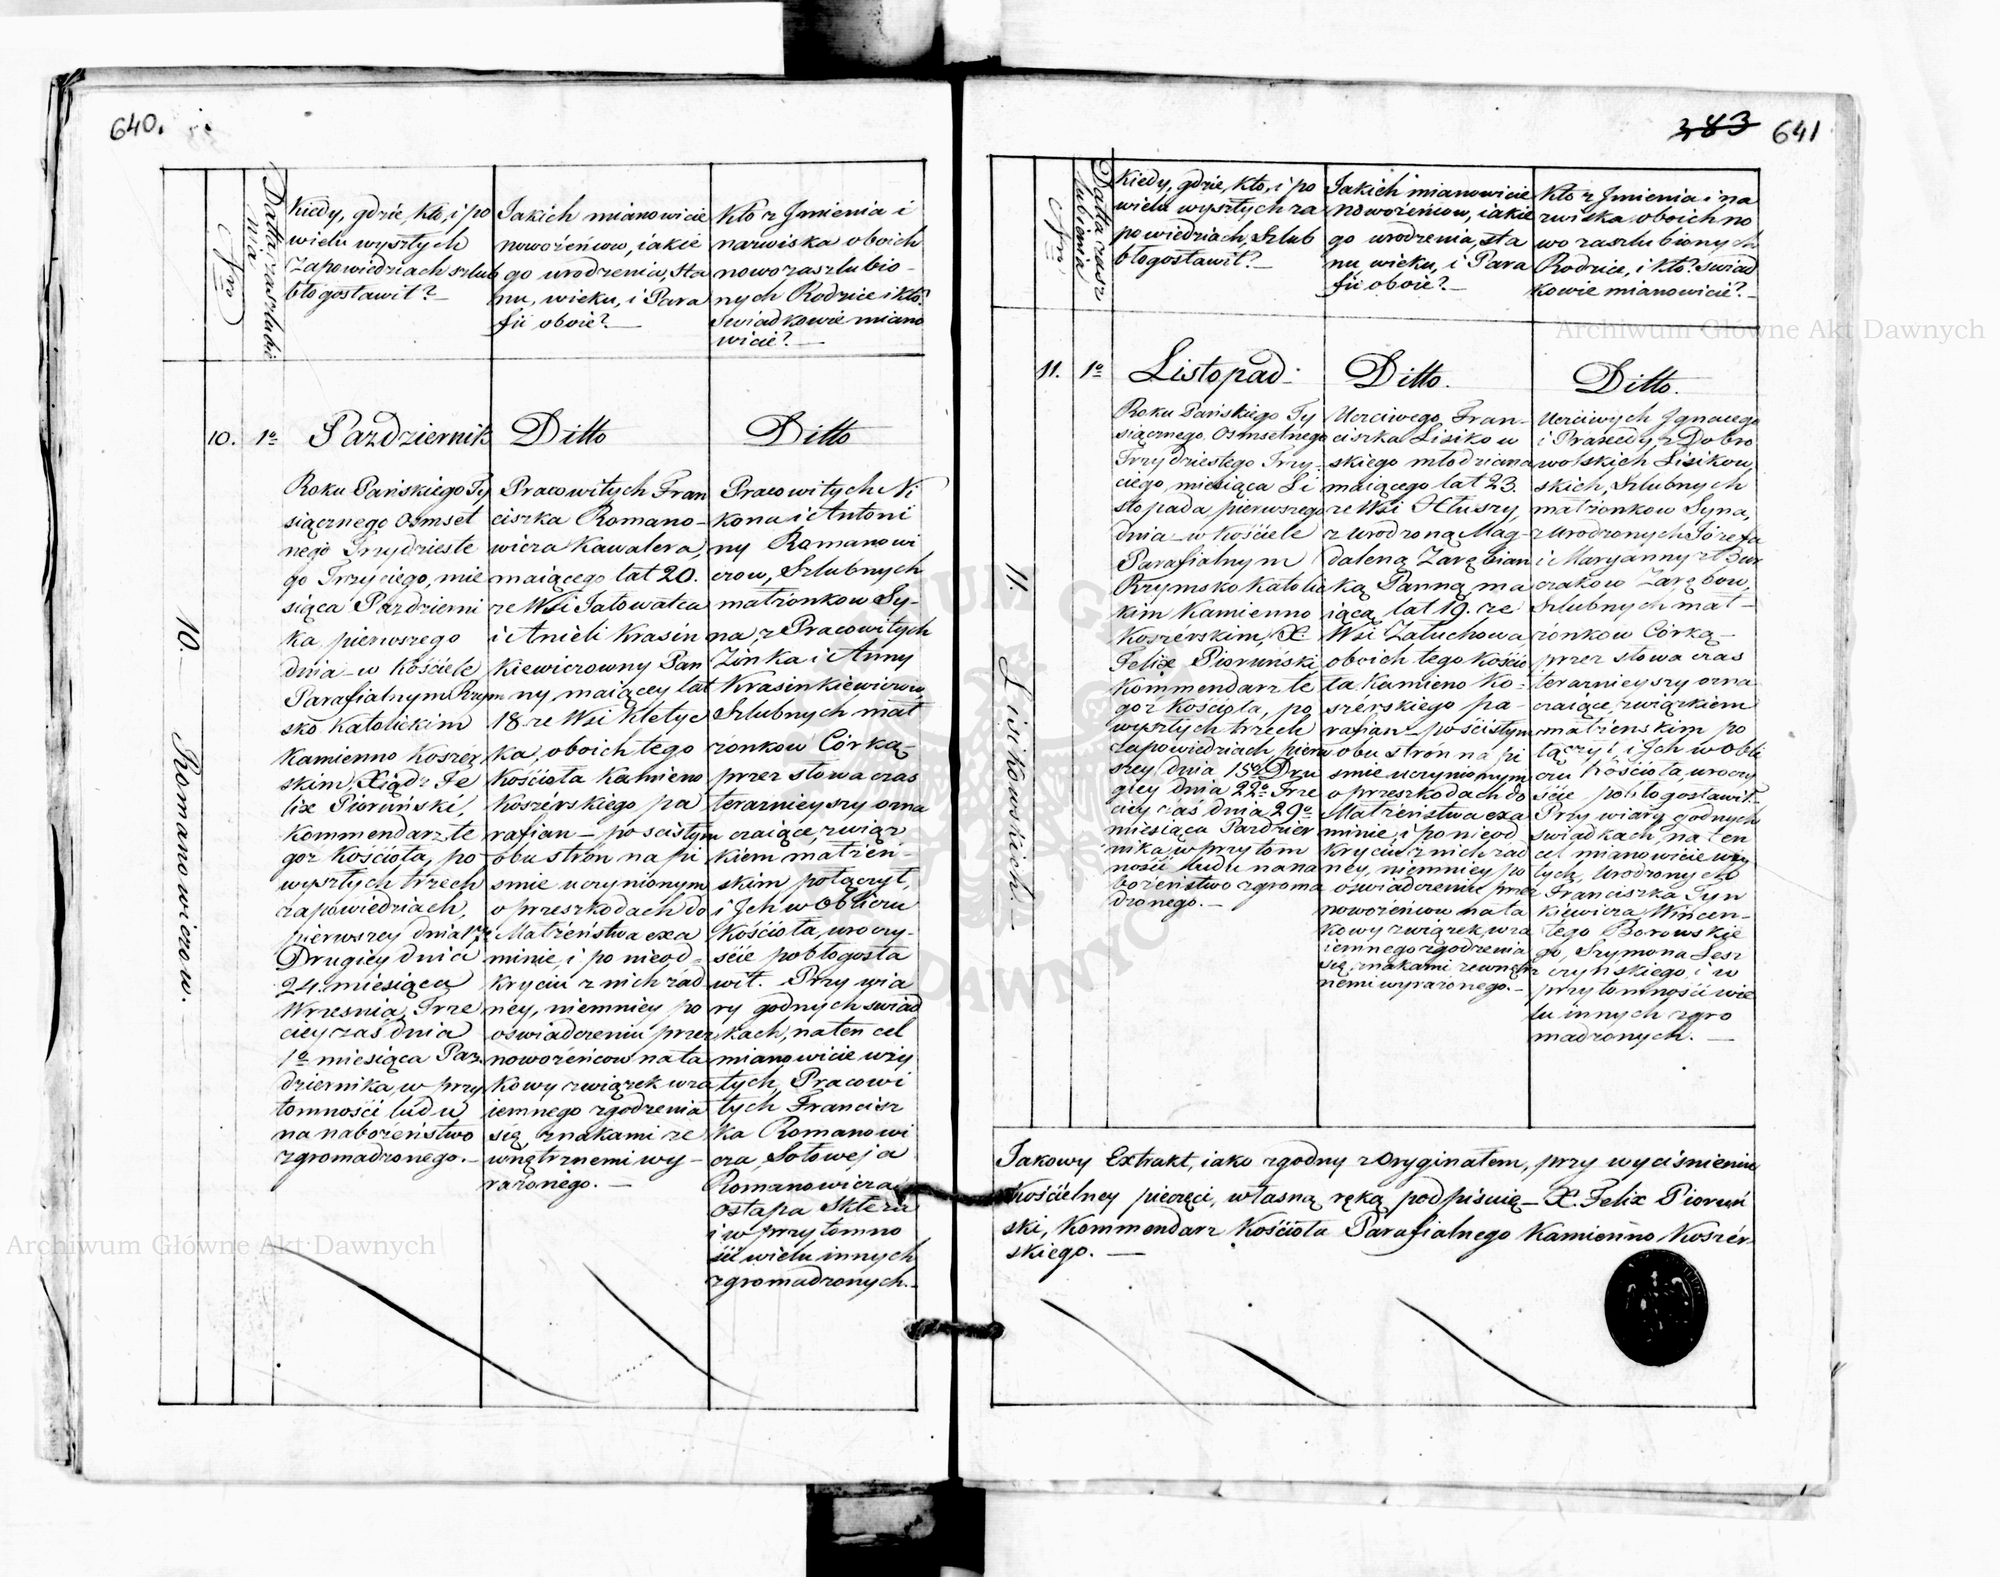 640.
Nro
Datta zaszlubie
nia
Kiedy, gdzie, kto, i po
wielu wyszłych
Zapowiedziach szlub
błogosławił?
Jakich mianowicie
nowożeńcow, iakie
go urodzenia, sta
nu, wieku, i Para
fii oboie?
Kto z Jmienia i
nazwiska oboich
nowozaszlubio-
nych Rodzice i kto?
Swiadkowie miano
wicie?
10. Romanowiczow.
10.
1º
Pazdziernik
Roku Pańskiego Ty
siącznego Osmset
nego Trzydzieste
go Trzyciego, mie
siąca Pazdzierni
ka pierwszego
dnia w kościele
Parafialnym Rzym
sko Katolickim
Kamienno Koszer
skim, Xiądz Fe
lix Pioruński,
Kommendarz te
goż Kościoła, po
wyszłych trzech
zapowiedziach,
pierwszey dnia 17º
Drugiey dnia
24. miesiąca
Wrzesnia, Trze
ciey zaś dnia
1º miesiąca Paz
dziernika, w przy
tomności ludu
na nabożeństwo
zgromadzonego.
Ditto
Pracowitych Fran
ciszka Romano-
wicza Kawalera,
maiącego lat 20.
ze Wsi Jatowatca
i Anieli Krasin
kiewiczowny Pan
ny, maiącey lat
18. ze Wsi Kletyc
ka, oboich tego
Kościoła Kamieno
Koszérskiego pa
rafian – po scistym
obu stron na pi
smie uczynionym
o przeszkodach do
Małżeństwa exa
minie, i po nieod-
kryciu z nich żad
ney, niemniey po
oswiadczeniu przez
nowożeńcow na ta
kowy związek wza
iemnego zgodzenia
się, znakami ze
wnątrznemi wy-
rażonego.
Ditto
Pracowitych Ni
kona i Antoni
ny Romanowi
czow, Szlubnych
małżonkow Sy-
na, z Pracowitych
Zinka i Anny
Krasinkiewiczow,
Szlubnych mał
żonkow Córką–
przez słowa czas
teraznieyszy ozna
czaiące, związ
kiem małżeń-
skim połączył,
i Jch w Obliczu
Kościoła, uroczy-
ście pobłogosła
wił. Przy wia
ry godnych swiad
kach, na ten cel
mianowicie wzy
tych, Pracowi
tych Francisz
ka Romanowi
cza, Sołoweja
Romanowicza,
Ostapa Skleza
i w przytomno
ści wielu innych
zgromadzonych.
383 641
Nro
Datta zasz
lubienia
Kiedy, gdzie, kto, i po
wielu wyszłych za
powiedziach, Szlub
błogosławił?
Jakich mianowicie
nowożeńcow, iakie
go urodzenia, sta
nu wieku, i Para
fii oboie?
Kto z Jmienia i na
zwiska oboich no
wo zaszlubionych
Rodzice, i kto? Swiad
kowie mianowicie?
11. Lisikowskich.
11.
1º
Listopad
Roku Pańskiego Ty
siącznego, Osmsetnego
Trzydziestego Trzy-
ciego, miesiąca Li
stopada pierwszego
dnia w Kościele
Parafialnym
Rzymsko Katolic
kim Kamienno
Koszerskim, X.
Felix Pioruński
Kommendarz te
goż Kościoła, po
wyszłych trzech
zapowiedziach, pierw
szey dnia 15º Dru
giey dnia 22º Trze
ciey zaś dnia 29º
miesiąca Pazdzier
nika, w przytom
ności ludu na na
bożeństwo zgroma
dzonego.
Ditto.
Uczciwego, Fran-
ciszka Lisikow
skiego młodziana
maiącego lat 23.
ze Wsi Hłuszy,
z Urodzoną Mag-
daleną Zarębian
ką Panną ma
iącą lat 19. ze
Wsi Załuchowa,
oboich tego Kościo
ła Kamieno Ko-
szérskiego pa-
rafian – po ścistym
obu strón na pi
smie uczynionym
o przeszkodach do
Małżeństwa exa
minie, i po nieod
kryciu z nich żad
ney, niemniey po
oswiadczeniu przez
nowożeńcow na ta
kowy związek, wza
iemnego zgodzenia
się, znakami zewnątrz
nemi wyrażonego.
Ditto.
Uczciwych Jgnacego
i Praxedy, z Dobro
wolskich Lisikow,
skich, Szlubnych
małżonkow Syna,
z Urodzonych Józefa
i Maryanny z Bur
czakow Zarębow,
Szlubnych mał-
żonkow Córką–
przez słowa czas
teraznieyszy ozna
czaiące, związkiem
małżenskim po
łączył, i Jch w Obli
czu Kościoła, uroczy
ście pobłogosławił.
Przy wiary godnych
swiadkach, na ten
cel mianowicie wzy
tych, Urodzonych
Franciszka Tyn
kiewicza, Wincen-
tego Borowskie
go, Szymona Lesz
czyńskiego, i w
przytomności wie
lu innych zgro
madzonych.
Takowy Extrakt, iako zgodny z Oryginałem, przy wyciśnieniu
Kościelney pieczęci, własną ręką podpisuię – X. Felix Pioruń
ski, Kommendarz Kościoła Parafialnego Kamienno Koszér
skiego.
Archiwum Główne Akt Dawnych
Archiwum Główne Akt Dawnych